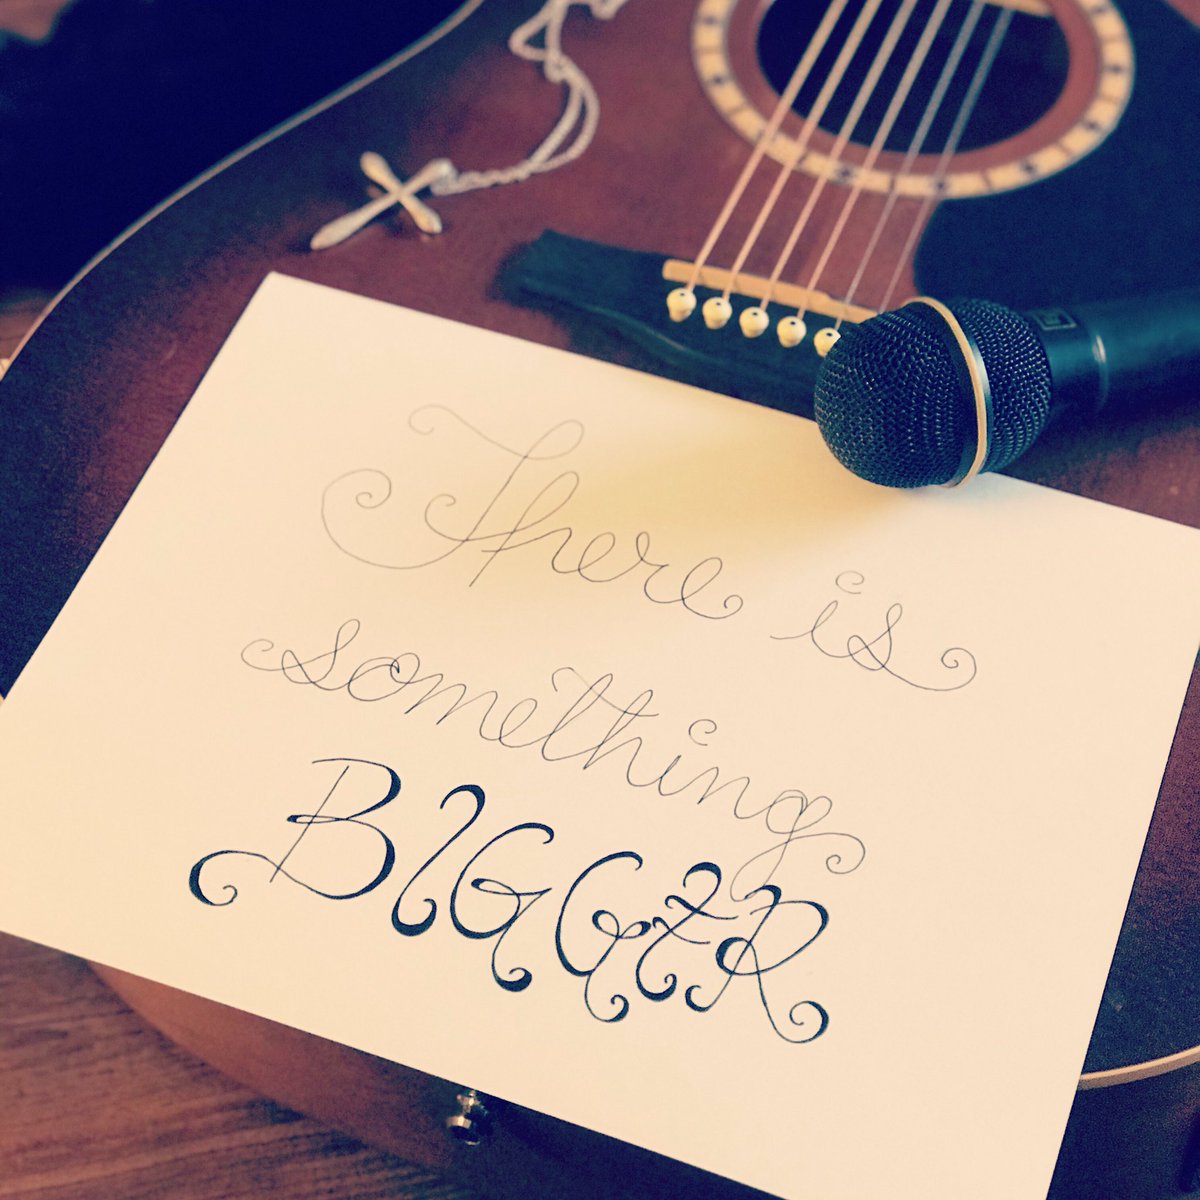 There is
something
BIGGER